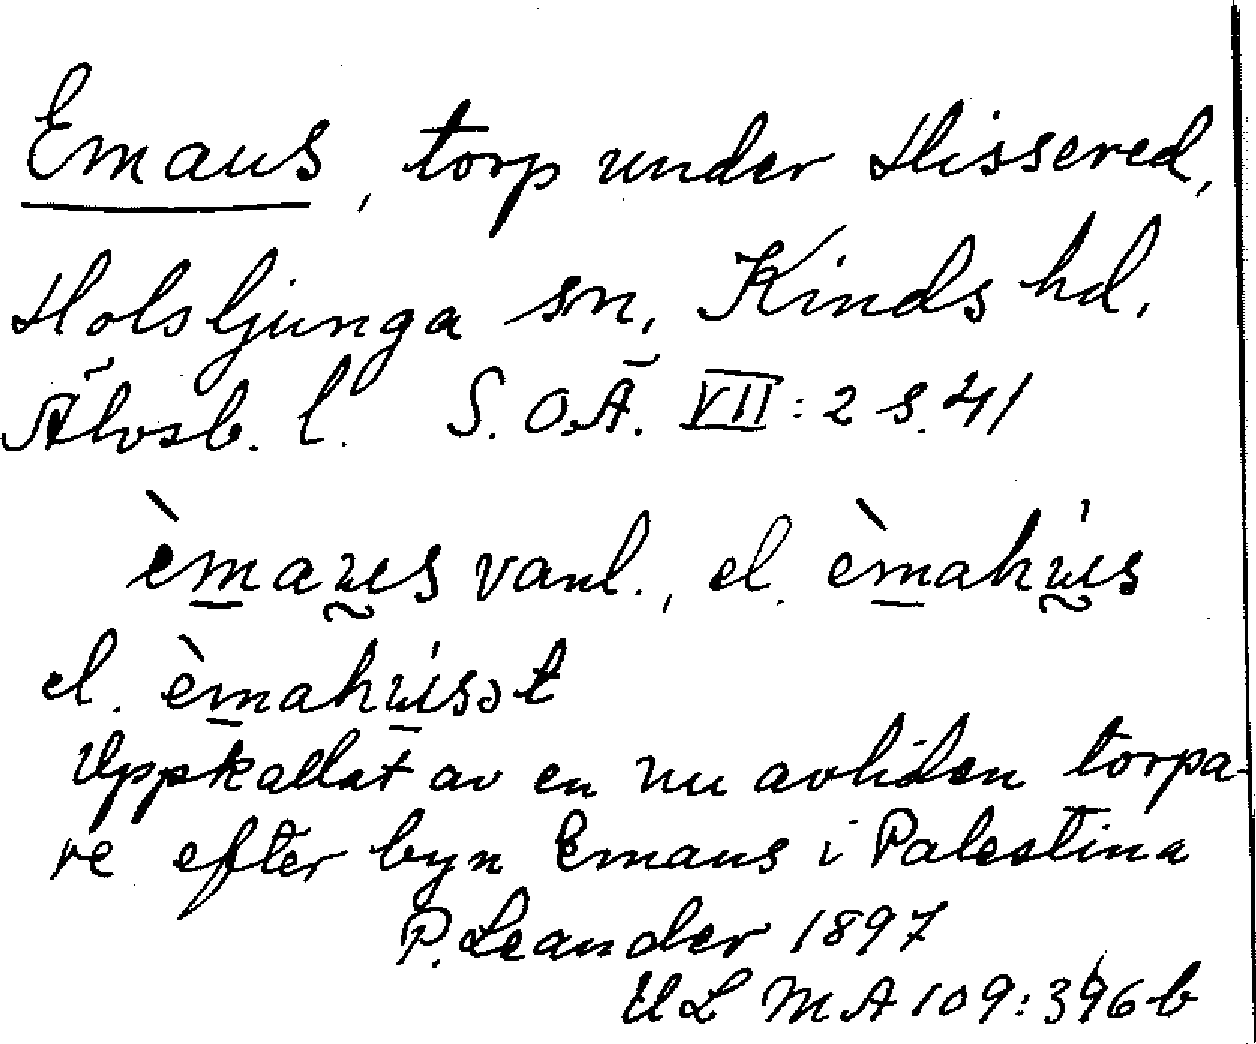 Emaus, torp under Hissered,
Holsljunga sn, Kinds hd.
Älvsb. l. S.O.Ä. VII:2 s.41
èmaus vanl., el. èmahus
el. èmahusət
Uppkallat av en nu avliden torpa-
re efter byn Emaus i Palestina
P. Leander 1897
ULMA 109:396 b